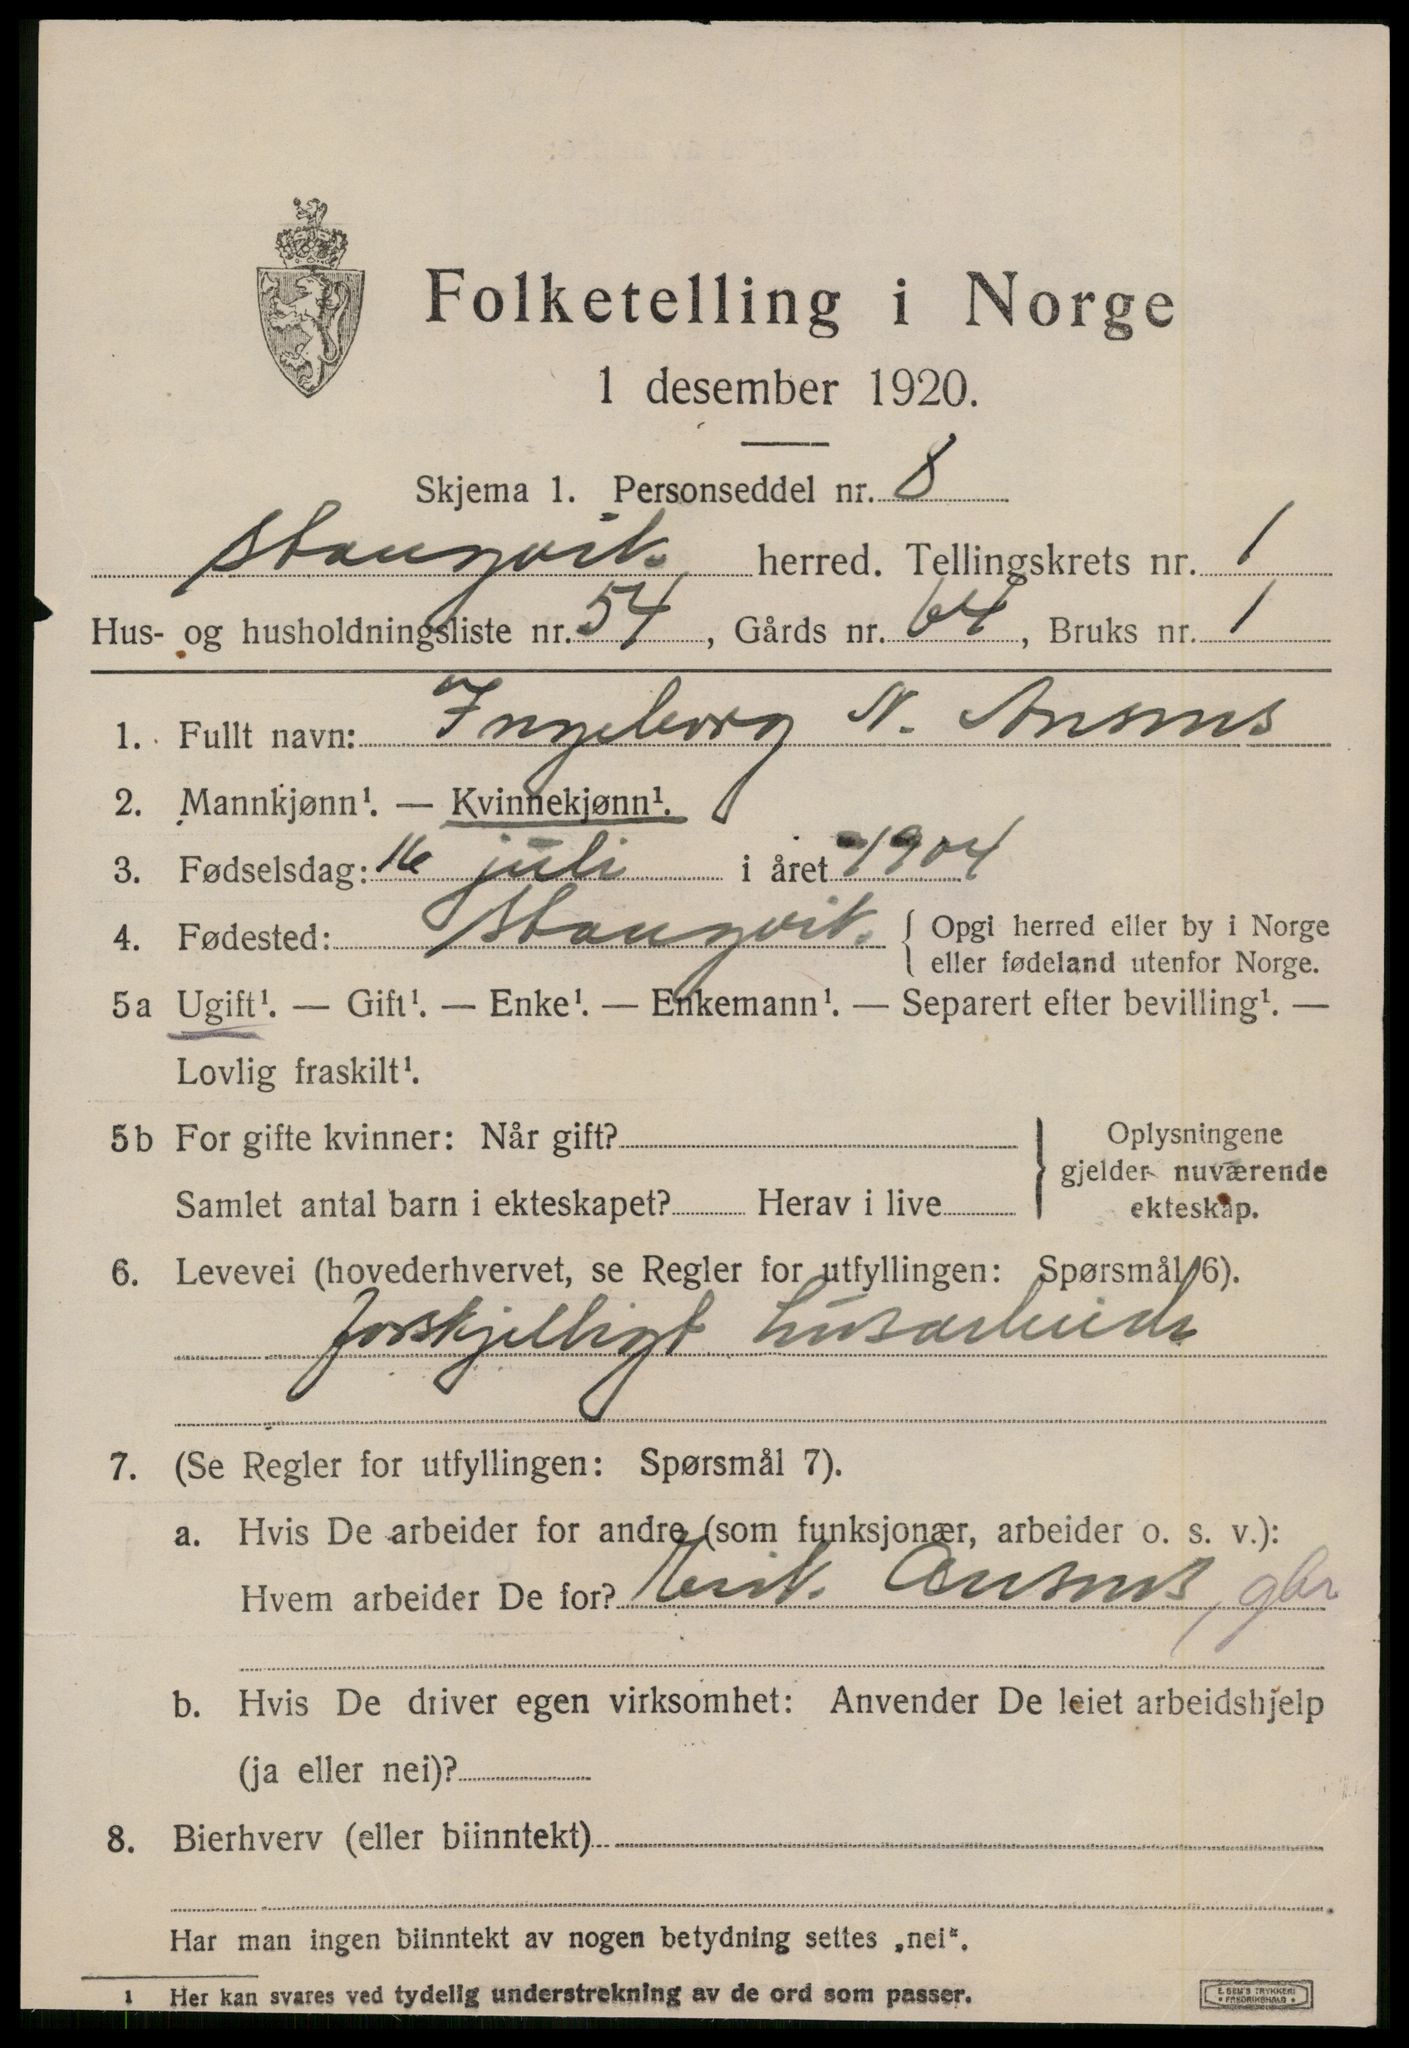 Folketelling i Norge
1 desember 1920.
Skjema 1. Personseddel nr. 8
Stangvik. herred. Tellingskrets nr. 1
Hus- og husholdningsliste nr. 54, Gårds nr. 64, Bruks nr. 1
1. Fullt navn: Ingeborg N. Ansnes
2. Mannkjønn¹. — Kvinnekjønn¹.
3. Fødselsdag: 16 juli i året 1904
4. Fødested: Stangvik. { Opgi herred eller by i Norge
eller fødeland utenfor Norge.
5a Ugift¹. — Gift¹. — Enke¹. — Enkemann¹. — Separert efter bevilling¹. —
Lovlig fraskilt¹.
5b For gifte kvinner: Når gift?
Samlet antal barn i ekteskapet? Herav i live
} Oplysningene
gjelder nuværende
ekteskap.
6. Levevei (hovederhvervet, se Regler for utfyllingen: Spørsmål 6).
forskjelligt husarbeide
7. (Se Regler for utfyllingen: Spørsmål 7).
a. Hvis De arbeider for andre (som funksjonær, arbeider o. s. v.):
Hvem arbeider De for? Erik. Ansnes, gbr
b. Hvis De driver egen virksomhet: Anvender De leiet arbeidshjelp
(ja eller nei)?
8. Bierhverv (eller biinntekt)
Har man ingen biinntekt av nogen betydning settes „nei“.
1 Her kan svares ved tydelig understrekning av de ord som passer.
E. SEM'S TRYKKERI
FREDRIKSHALD